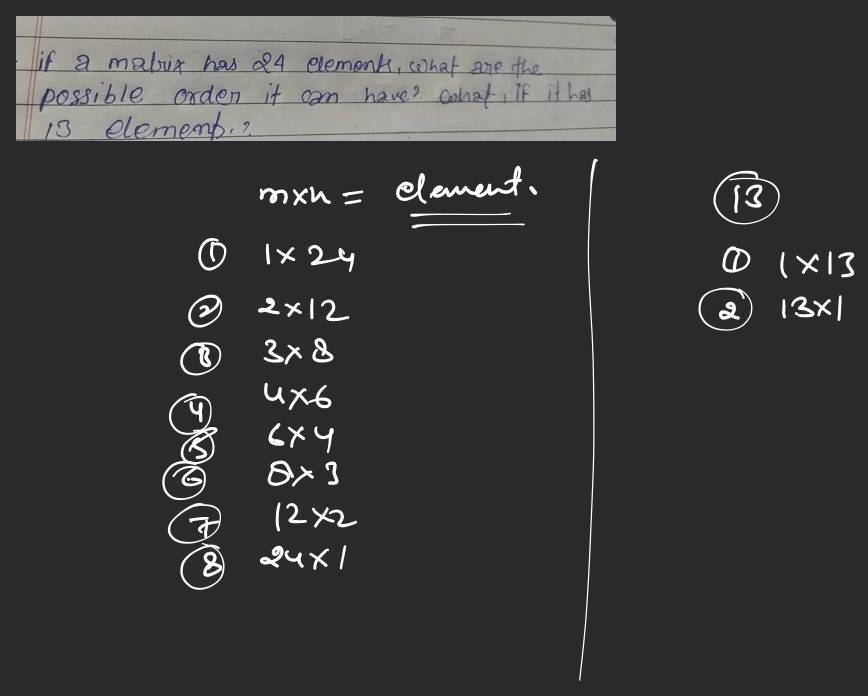 if a matrix has 24 elements, what are the
possible order it can have? what, if it has
13 elements.?
m×n = element.
① 1×24
② 2×12
③ 3×8
④ 4×6
⑤ 6×4
⑥ 8×3
⑦ 12×2
⑧ 24×1
13
① 1×13
② 13×1